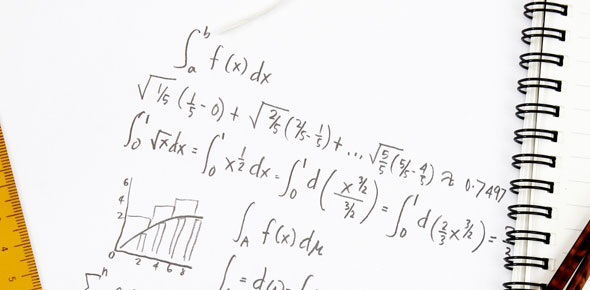 ∫ₐᵇ f(x)dx
√1/5 (1/5 - 0) + √2/5 (2/5 - 1/5) + ... √5/5 (5/5 - 4/5) ≈ 0.7497
∫₀¹ √x dx = ∫₀¹ x^1/2 dx = ∫₀¹ d(x^3/2 / 3/2) = ∫₀¹ d(2/3 x^3/2) =
6
4
2
0
2 4 6 8
∫_A f(x)dμ